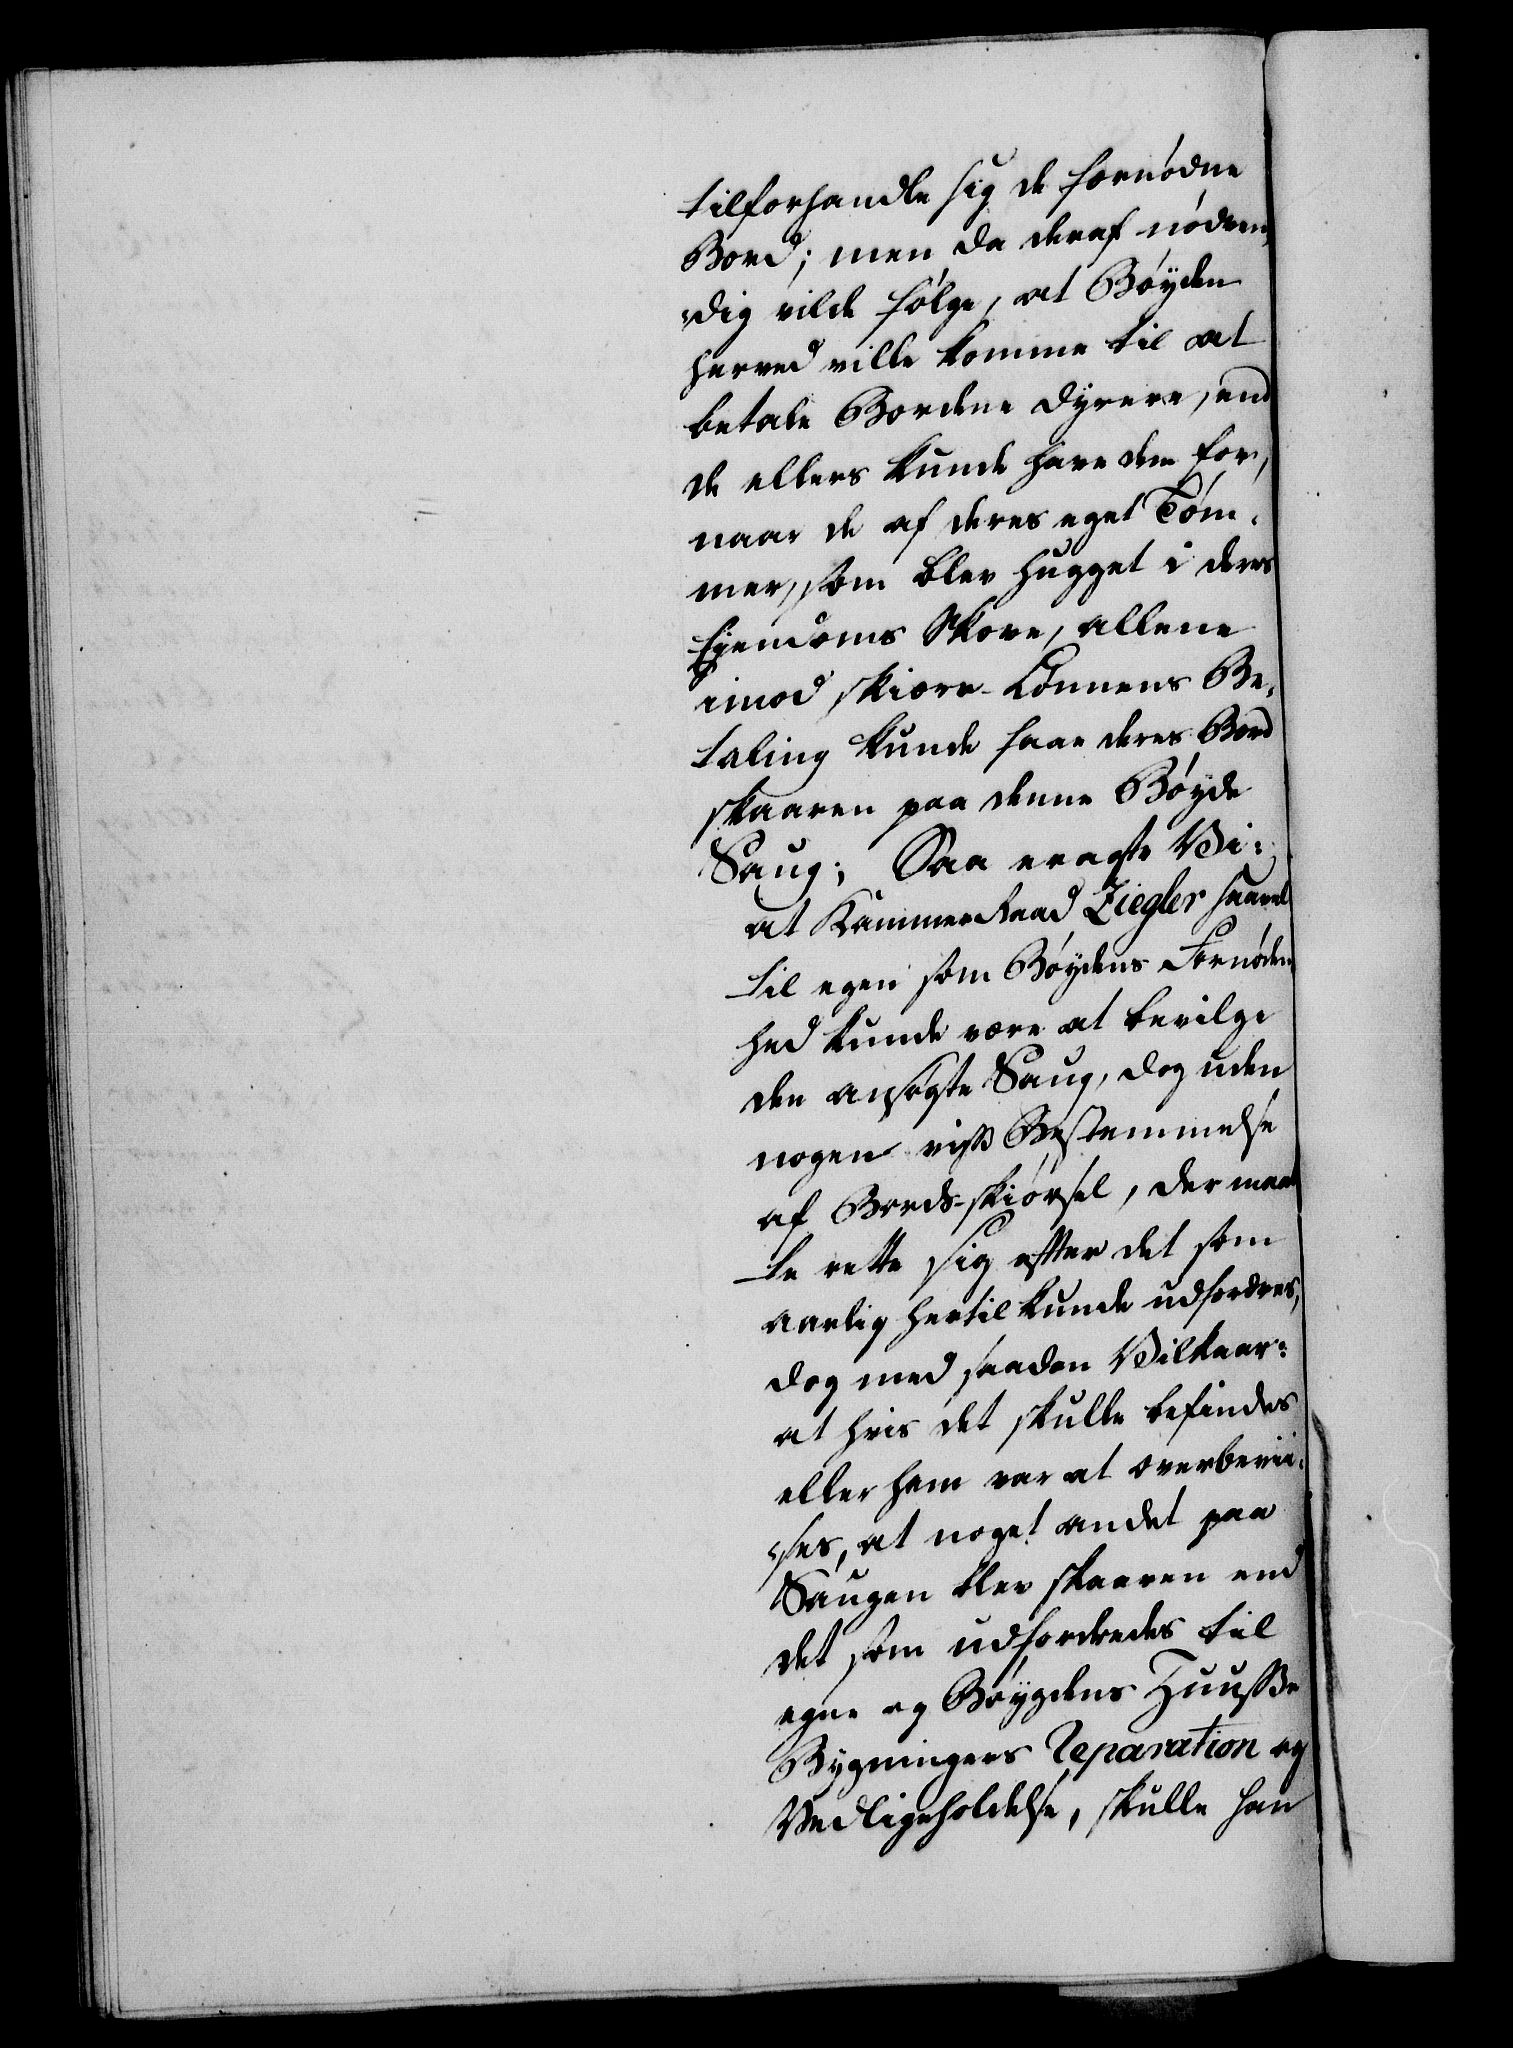 tilforhandle sig de fornødne
Bord; men da deraf nødven,
dig vilde følge, at Bøyden
herved ville komme til at
betale Bordene dyrere, end
de ellers kunde have dem for,
naar de af deres eget Tøm,
mer, som blev hugget i deres
Ejendoms Skove, allene
imod skiære-Lønnens Be,
taling kunde faae deres Bord
skaaren paa denne Bøyde
Saug; Saa eragte Vi:
at Kammer Raad Ziegler saavel
til egen som Bøydens Fornøden,
hed kunde være at bevilge
den ansøgte Saug, dog uden
nogen viss Bestemmelse
af Bords-skiørsel, der maat
te rette sig efter det som
aarlig hertil kunde udfordres,
dog med saadan Vilkaar:
at hvis det skulle befindes
eller ham var at overbevii,
ses, at noget andet paa
Saugen blev skaaren end
det som udfordredes til
egne og Bøygdens Huusse
Bygningers Reparation og
Vedligeholdelse, skulle han